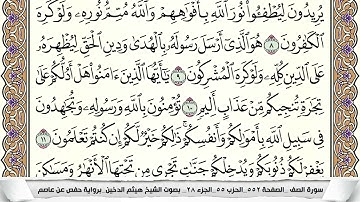 يُرِيدُونَ لِيُطْفِـُٔوا۟ نُورَ ٱللَّهِ بِأَفْوَٰهِهِمْ وَٱللَّهُ مُتِمُّ نُورِهِۦ وَلَوْ كَرِهَ
ٱلْكَٰفِرُونَ ٨ هُوَ ٱلَّذِىٓ أَرْسَلَ رَسُولَهُۥ بِٱلْهُدَىٰ وَدِينِ ٱلْحَقِّ لِيُظْهِرَهُۥ
عَلَى ٱلدِّينِ كُلِّهِۦ وَلَوْ كَرِهَ ٱلْمُشْرِكُونَ ٩ يَٰٓأَيُّهَا ٱلَّذِينَ ءَامَنُوا۟ هَلْ أَدُلُّكُمْ عَلَىٰ
تِجَٰرَةٍ تُنجِيكُم مِّنْ عَذَابٍ أَلِيمٍ ١٠ تُؤْمِنُونَ بِٱللَّهِ وَرَسُولِهِۦ وَتُجَٰهِدُونَ
فِى سَبِيلِ ٱللَّهِ بِأَمْوَٰلِكُمْ وَأَنفُسِكُمْ ذَٰلِكُمْ خَيْرٌ لَّكُمْ إِن كُنتُمْ تَعْلَمُونَ ١١
يَغْفِرْ لَكُمْ ذُنُوبَكُمْ وَيُدْخِلْكُمْ جَنَّٰتٍ تَجْرِى مِن تَحْتِهَا ٱلْأَنْهَٰرُ وَمَسَٰكِنَ
سورة الصف _ الصفحة ٥٥٢ _ الحزب ٥٥ _ الجزء ٢٨ _ بصوت الشيخ هيثم الدخين _ برواية حفص عن عاصم